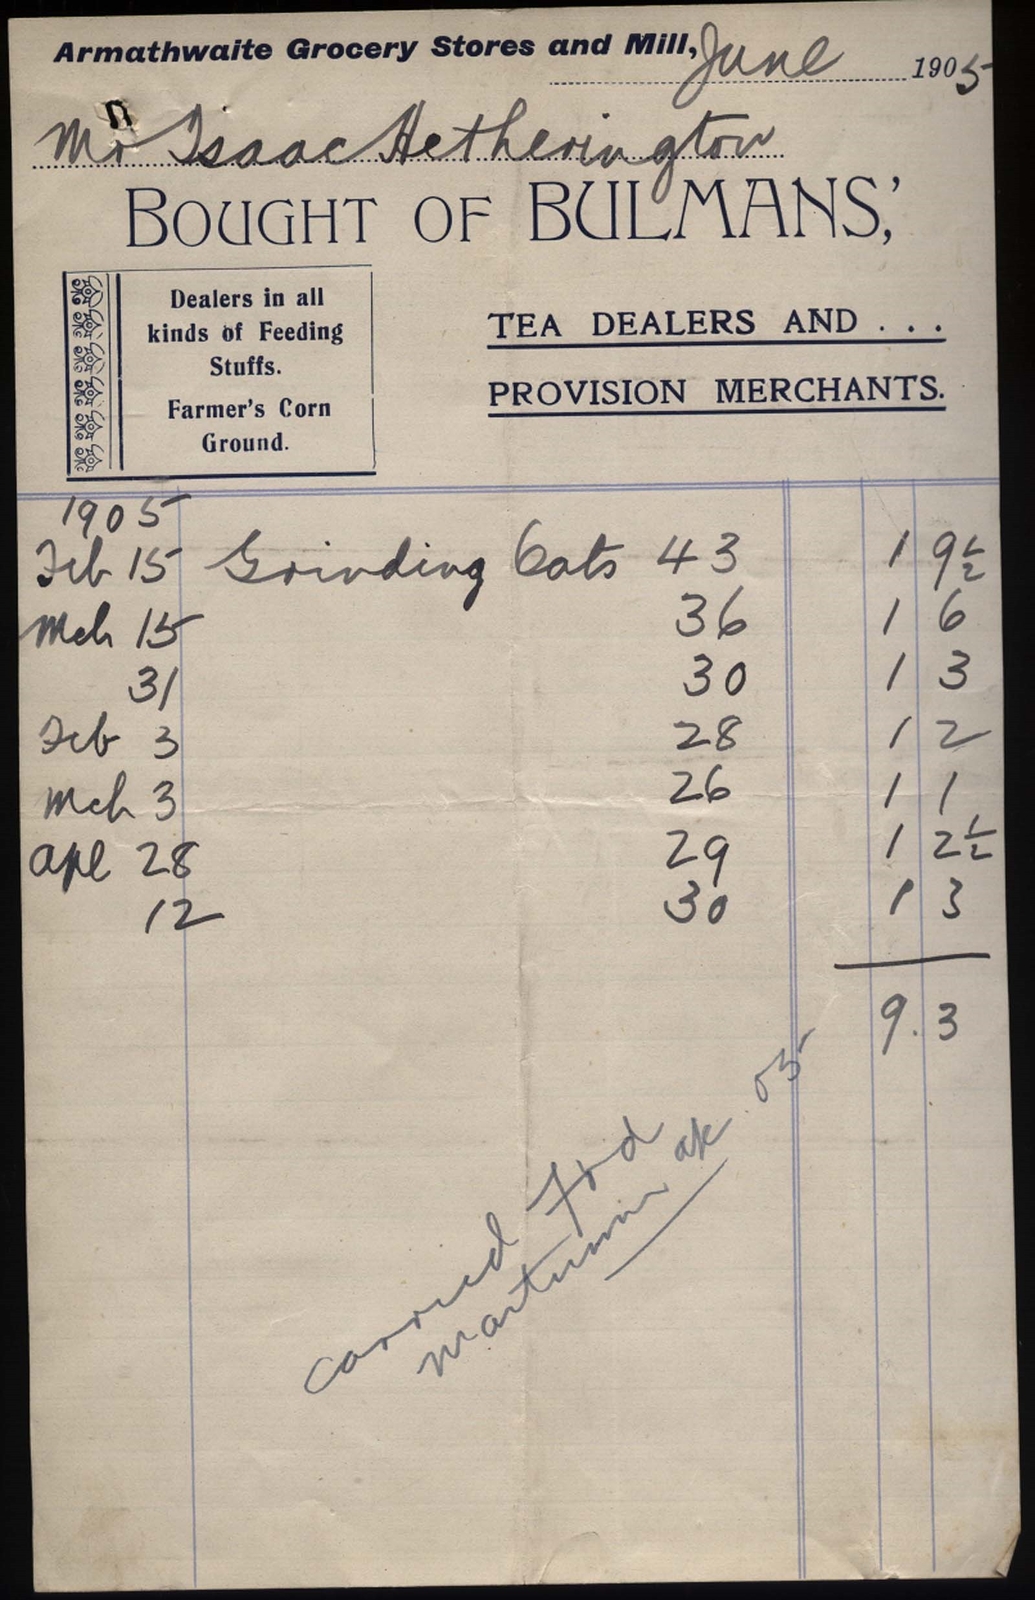 Armathwaite Grocery Stores and Mill, June 1905
Mr Isaac Hetherington
BOUGHT OF BULMANS,'
Dealers in all
kinds of Feeding
Stuffs.
Farmer's Corn
Ground.
TEA DEALERS AND . . .
PROVISION MERCHANTS.
1905
Feb 15 Grinding Oats 43 1 9½
Mch 15 36 1 6
31 30 1 3
Feb 3 28 1 2
Mch 3 26 1 1
Apl 28 29 1 2½
12 30 1 3
9.3
carried Frd
05